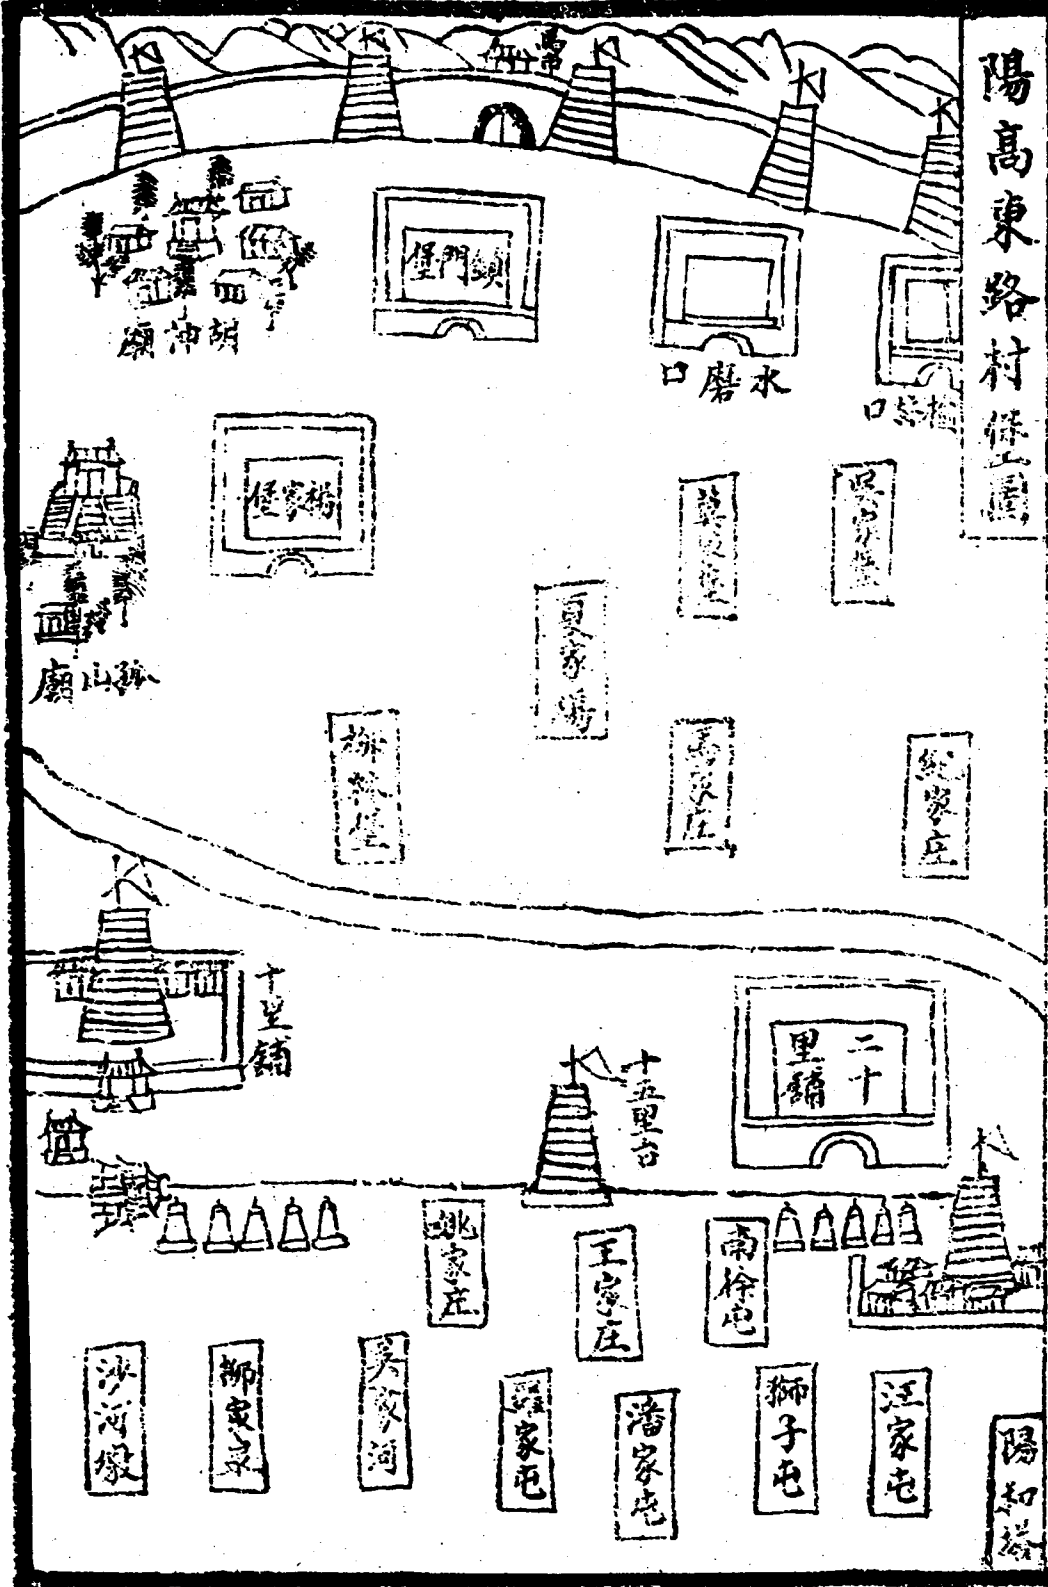 陽高東路村堡圖
鎮門堡
水磨口
胡神廟
吳家堡
楊家堡
夏家場
孤山廟
馬家庄
紀家庄
十里鋪
二十里鋪
十五里台
姚家庄
王家庄
南徐屯
沙河墩
柳家泉
吳家河
羅家屯
潘家屯
獅子屯
汪家屯
陽和塔